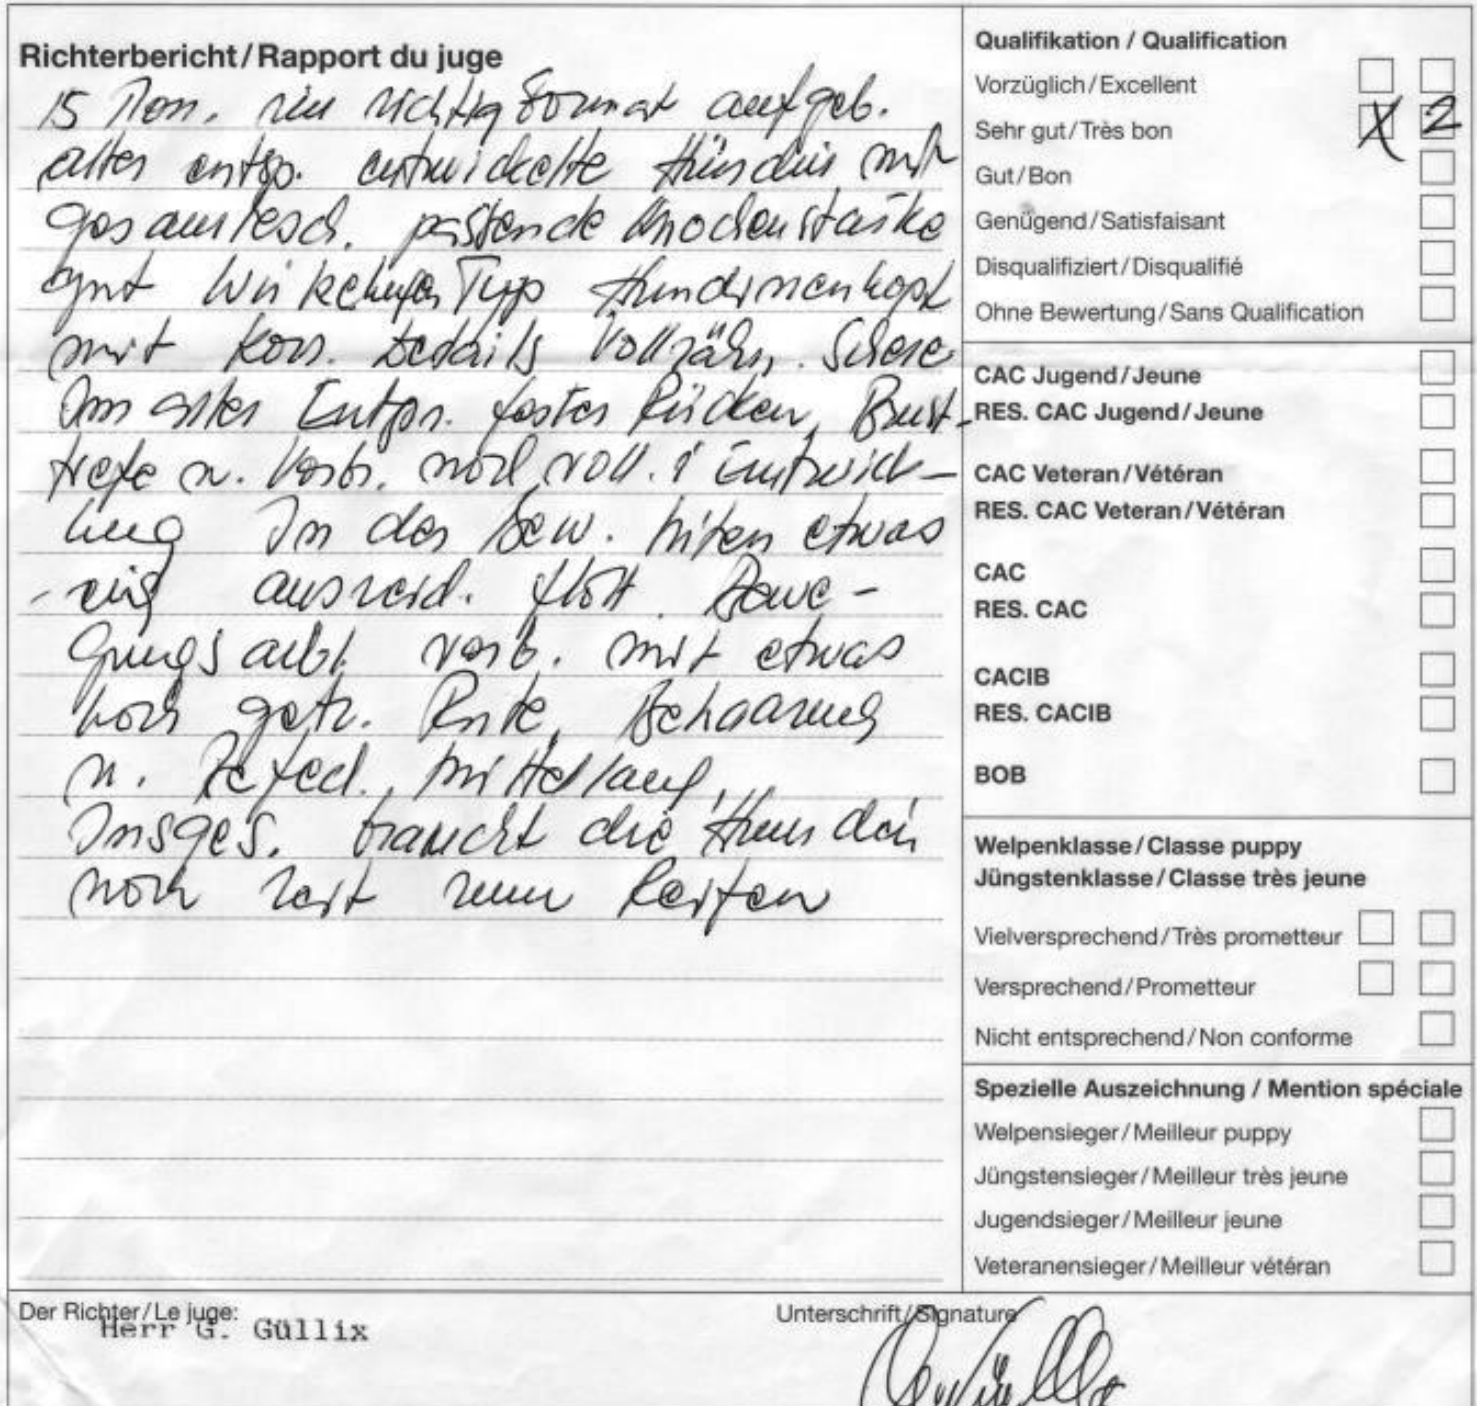 Richterbericht / Rapport du juge
15 Mon. im richtig Format aufgeb.
alter entsp. entwickelte Hündin mit
gesamtersch. passende Knochenstärke
gut Hündinnenkopf
mit korr. Details Vollzahn. Schere
Dem alter Entspr. fester Rücken, Brust-
tiefe u. Vorbr. noch voll. i Entwick-
lung In der Bew. hinten etwas
eng ausreich. flott. Bewe-
gungsabl. vorb. mit etwas
hoch getr. Rute, Behaarung
u. Befed. mittellang,
Insges. braucht die Hündin
noch Zeit zum Reifen
Qualifikation / Qualification
Vorzüglich / Excellent
Sehr gut / Très bon X 2
Gut / Bon
Genügend / Satisfaisant
Disqualifiziert / Disqualifié
Ohne Bewertung / Sans Qualification
CAC Jugend / Jeune
RES. CAC Jugend / Jeune
CAC Veteran / Vétéran
RES. CAC Veteran / Vétéran
CAC
RES. CAC
CACIB
RES. CACIB
BOB
Welpenklasse / Classe puppy
Jüngstenklasse / Classe très jeune
Vielversprechend / Très prometteur
Versprechend / Prometteur
Nicht entsprechend / Non conforme
Spezielle Auszeichnung / Mention spéciale
Welpensieger / Meilleur puppy
Jüngstensieger / Meilleur très jeune
Jugendsieger / Meilleur jeune
Veteranensieger / Meilleur vétéran
Der Richter / Le juge:
Herr G. Güllix
Unterschrift / Signature